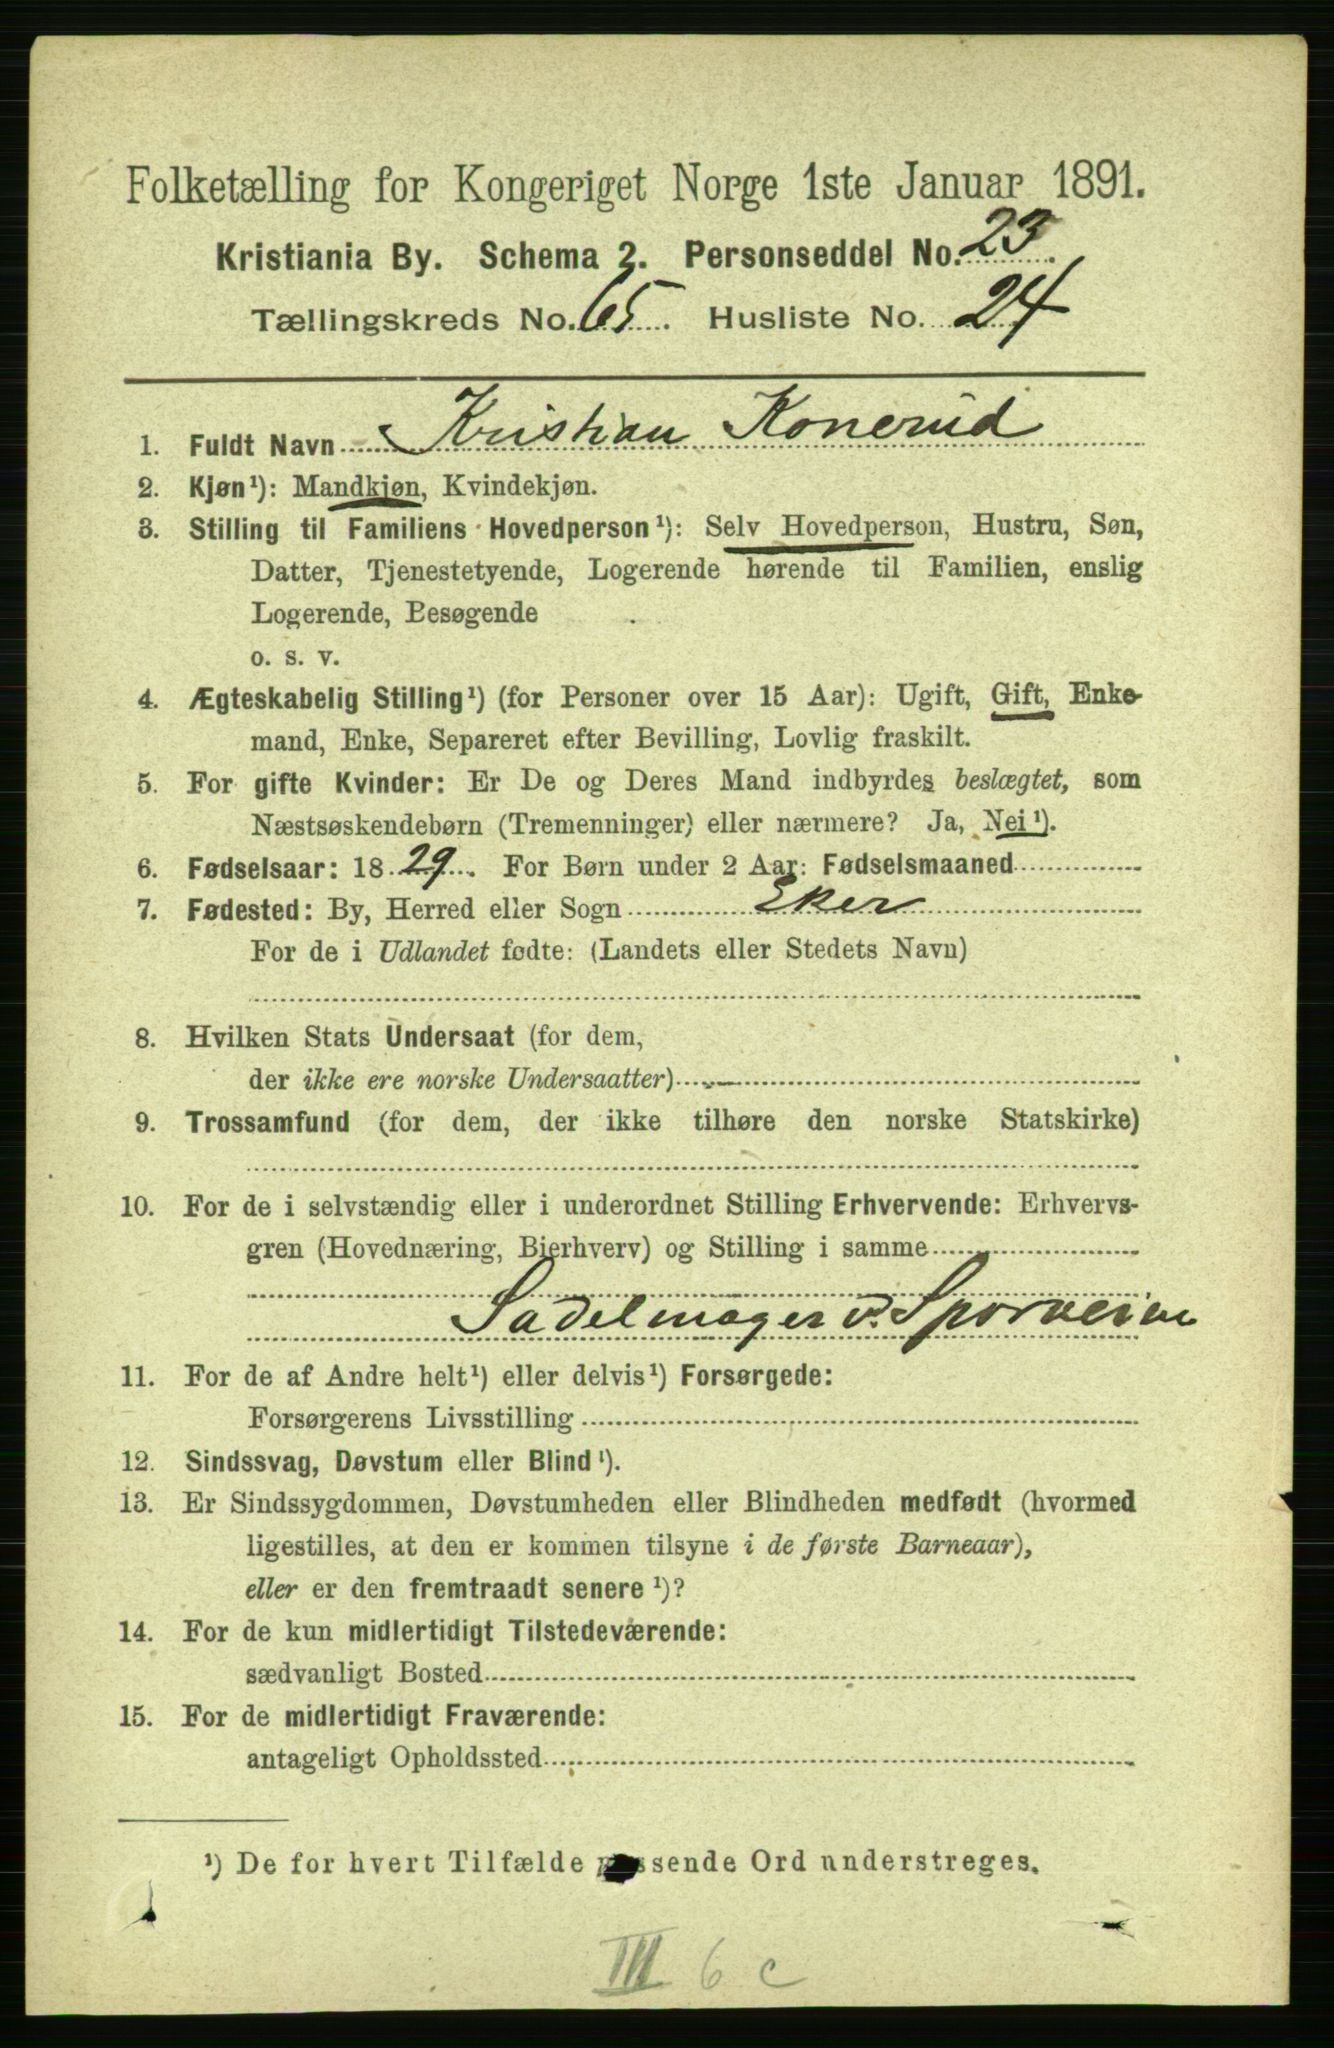 Folketælling for Kongeriget Norge 1ste Januar 1891.
Kristiania By. Schema 2. Personseddel No. 23.
Tællingskreds No. 65. Husliste No. 24
1. Fuldt Navn Kristian Konerud
2. Kjøn¹): Mandkjøn, Kvindekjøn.
3. Stilling til Familiens Hovedperson¹): Selv Hovedperson, Hustru, Søn,
Datter, Tjenestetyende, Logerende hørende til Familien, enslig
Logerende, Besøgende
o. s. v.
4. Ægteskabelig Stilling¹) (for Personer over 15 Aar): Ugift, Gift, Enke-
mand, Enke, Separeret efter Bevilling, Lovlig fraskilt.
5. For gifte Kvinder: Er De og Deres Mand indbyrdes beslægtet, som
Næstsøskendebørn (Tremenninger) eller nærmere? Ja, Nei¹).
6. Fødselsaar: 1829. For Børn under 2 Aar: Fødselsmaaned
7. Fødested: By, Herred eller Sogn Eker
For de i Udlandet fødte: (Landets eller Stedets Navn)
8. Hvilken Stats Undersaat (for dem,
der ikke ere norske Undersaatter)
9. Trossamfund (for dem, der ikke tilhøre den norske Statskirke)
10. For de i selvstændig eller i underordnet Stilling Erhvervende: Erhvervs-
gren (Hovednæring, Bierhverv) og Stilling i samme
Sadelmager v. Sporveien
11. For de af Andre helt¹) eller delvis¹) Forsørgede:
Forsørgerens Livsstilling
12. Sindssvag, Døvstum eller Blind¹).
13. Er Sindssygdommen, Døvstumheden eller Blindheden medfødt (hvormed
ligestilles, at den er kommen tilsyne i de første Barneaar),
eller er den fremtraadt senere¹)?
14. For de kun midlertidigt Tilstedeværende:
sædvanligt Bosted
15. For de midlertidigt Fraværende:
antageligt Opholdssted
¹) De for hvert Tilfælde passende Ord understreges.
III 6 c